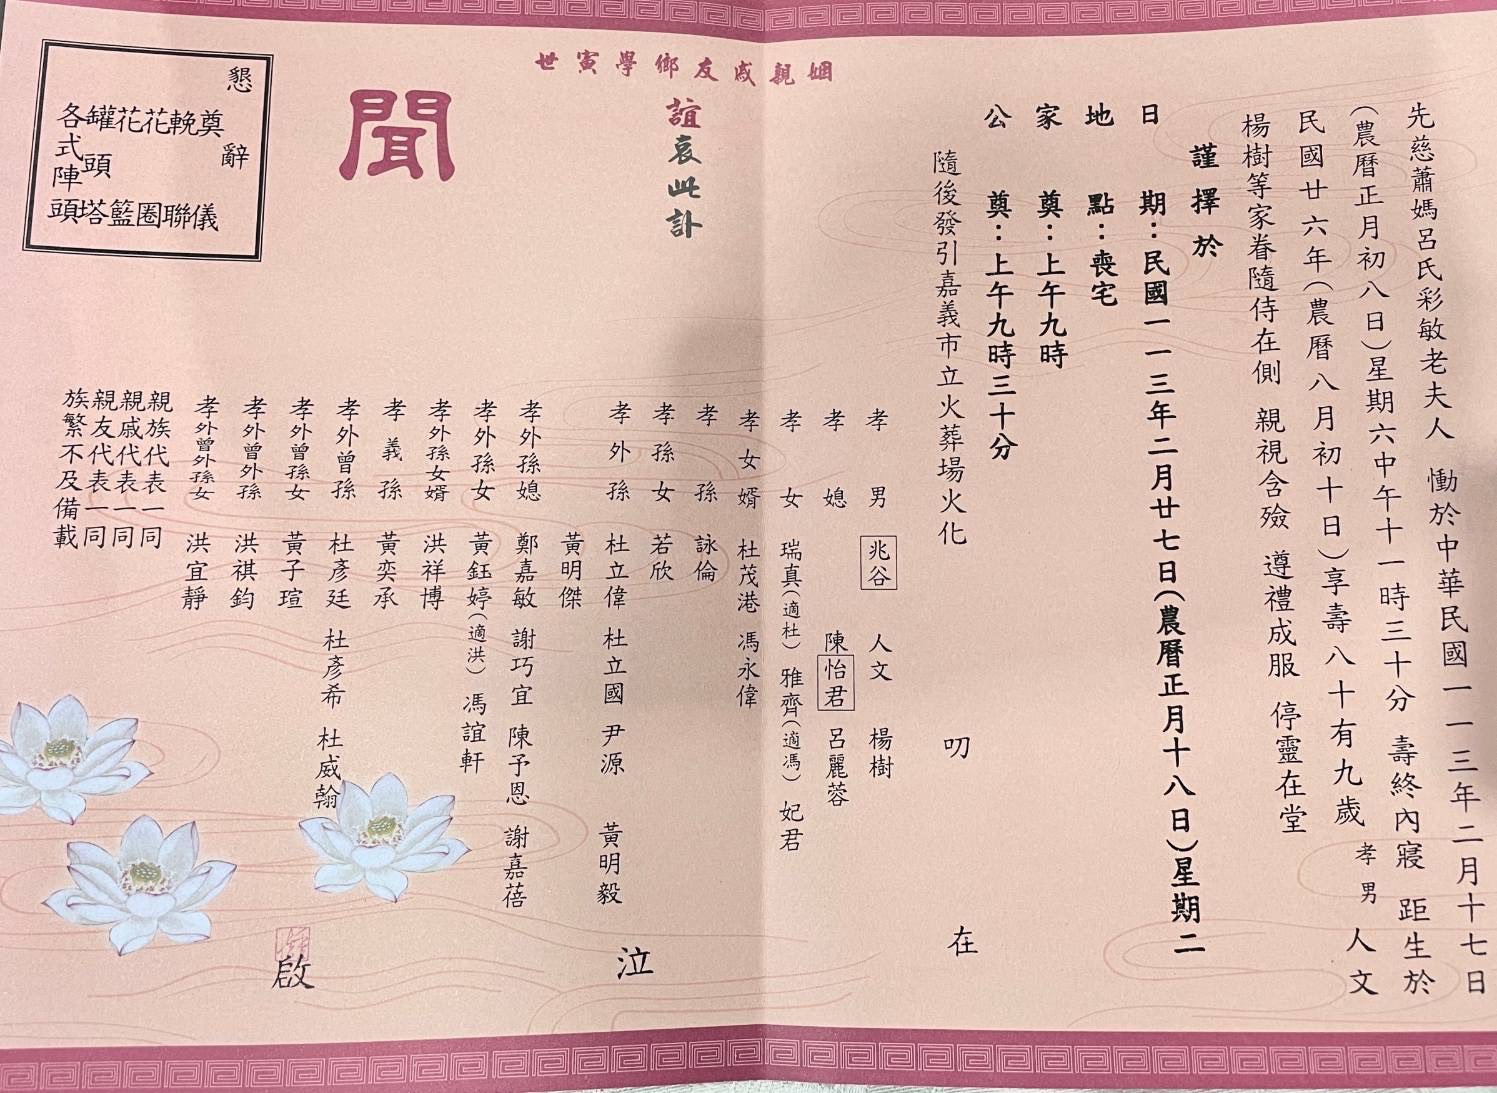 先慈蕭媽呂氏彩敏老夫人 慟於中華民國一一三年二月十七日
(農曆正月初八日)星期六中午十一時三十分 壽終內寢 距生於
民國廿六年(農曆八月初十日)享壽八十有九歲 孝男 人文
楊樹等家眷隨侍在側 親視含殮 遵禮成服 停靈在堂
謹擇於
日期：民國一一三年二月廿七日(農曆正月十八日)星期二
地點：喪宅
家奠：上午九時
公奠：上午九時三十分
隨後發引嘉義市立火葬場火化
叨在
姻親戚友鄉學寅世
誼哀此訃
聞
孝男 兆谷 人文 楊樹
孝媳 陳怡君 呂麗蓉
孝女 瑞真(適杜) 雅齊(適馮) 妃君
孝女婿 杜茂港 馮永偉
孝孫 詠倫
孝孫女 若欣
孝外孫 杜立偉 杜立國 尹源 黃明毅
黃明傑
孝外孫媳 鄭嘉敏 謝巧宜 陳予恩 謝嘉蓓
孝外孫女 黃鈺婷(適洪) 馮誼軒
孝外孫女婿 洪祥博
孝義孫 黃奕承
孝外曾孫 杜彥廷 杜彥希 杜威翰
孝外曾孫女 黃子瑄
孝外曾外孫 洪祺鈞
孝外曾外孫女 洪宜靜
親族代表一同
親戚代表一同
親友代表一同
族繁不及備載
泣
啟
懇辭
奠儀
輓聯
花圈
花籃
罐頭塔
各式陣頭